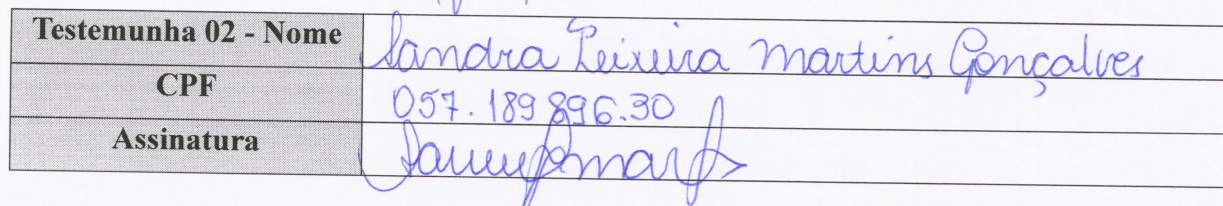 Testemunha 02 - Nome Sandra Teixeira Martins Gonçalves
CPF 057.189 896.30
Assinatura